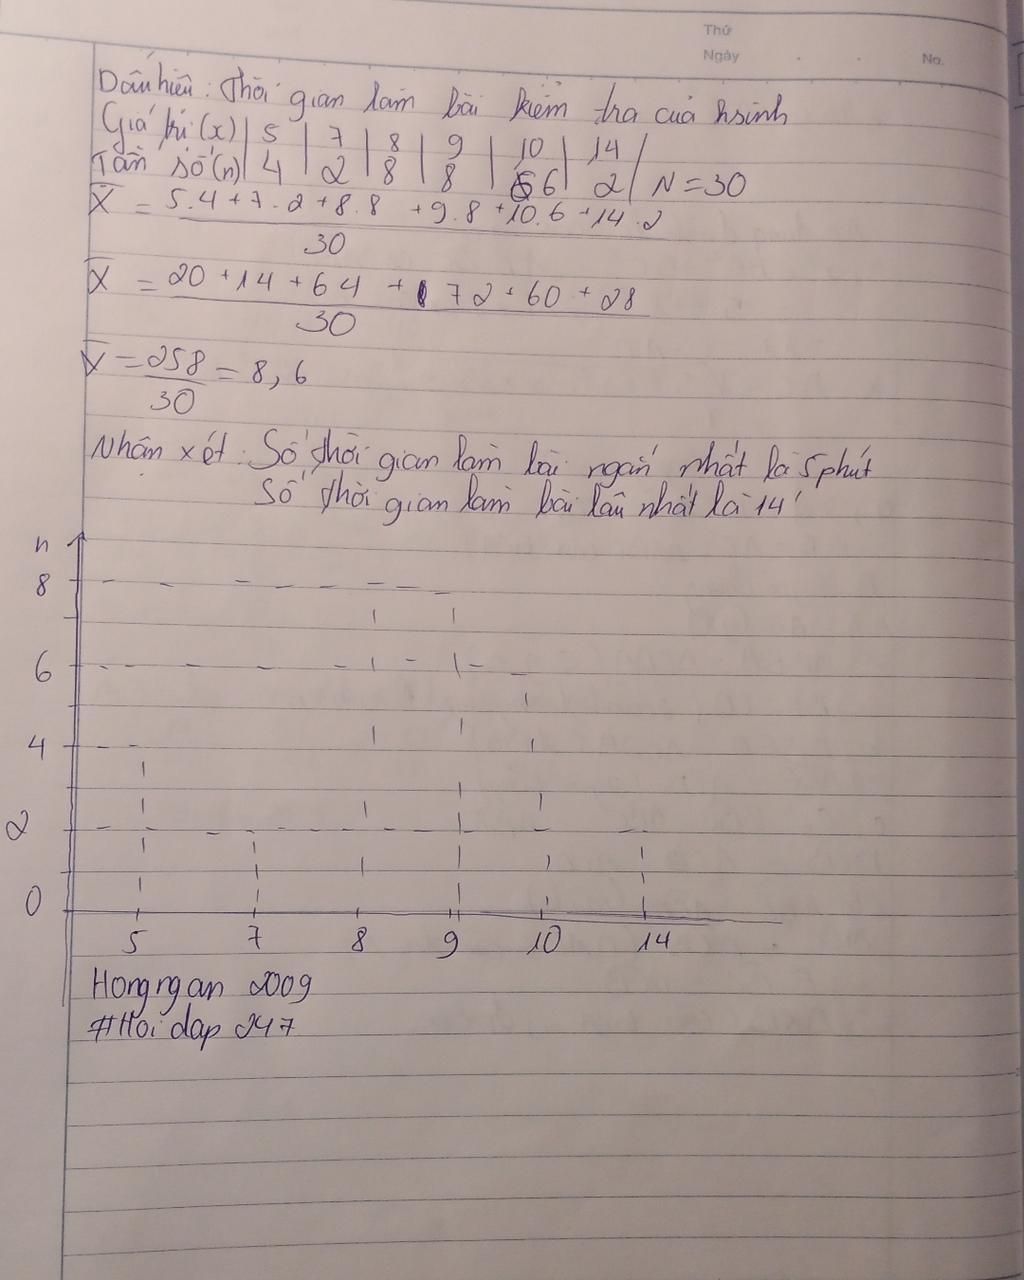 Thứ
Ngày . . No.
Dấu hiệu: thời gian làm bài kiểm tra của hsinh
Giá trị (x) | 5 | 7 | 8 | 9 | 10 | 14 |
Tần số (n) | 4 | 2 | 8 | 8 | 6 | 2 | N = 30
X̄ = 5.4 + 7.2 + 8.8 + 9.8 + 10.6 + 14.2
30
X̄ = 20 + 14 + 64 + 72 + 60 + 28
30
X̄ = 258 = 8,6
30
Nhân xét: Số thời gian làm bài ngắn nhất là 5 phút
Số thời gian làm bài lâu nhất là 14'
n
8
6
4
2
0
5 7 8 9 10 14
Hongngan 2009
#Hoi dap 247